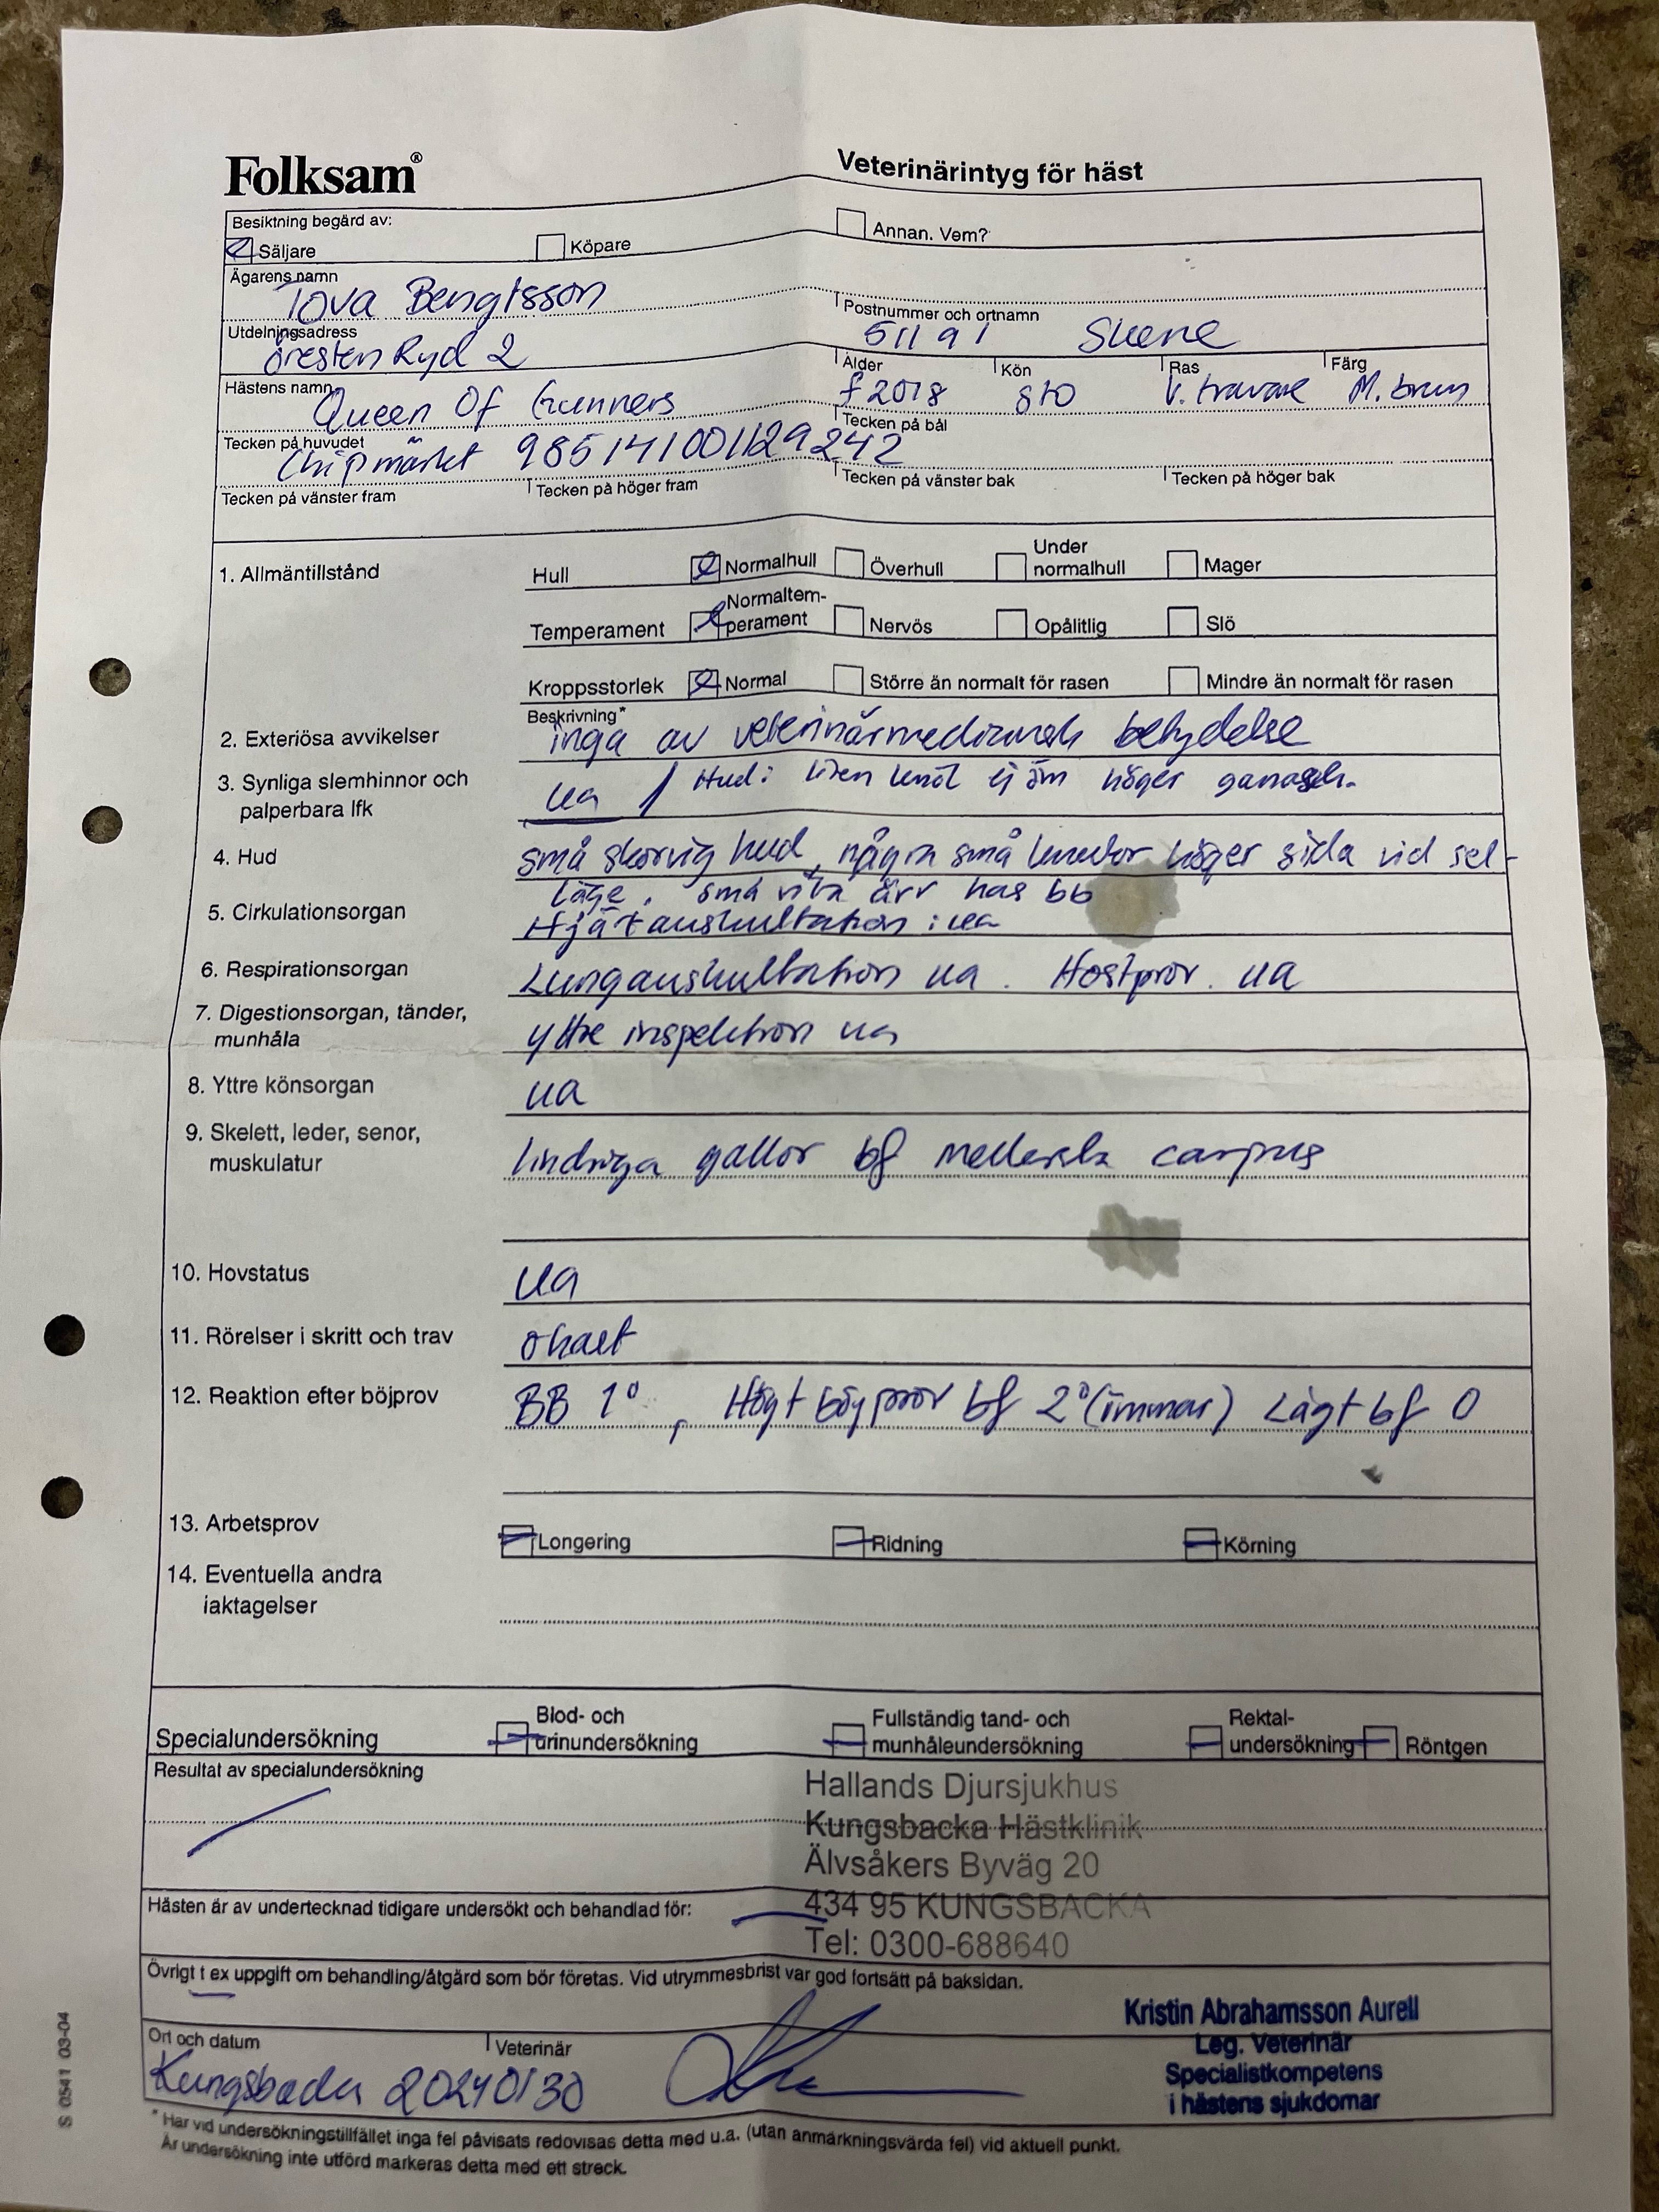 Folksam®
Veterinärintyg för häst
Besiktning begärd av:
Säljare
Köpare
Annan. Vem?
Ägarens namn
Tova Bengtsson
Utdelningsadress
Öresten Ryd 2
Postnummer och ortnamn
511 91 Skene
Hästens namn
Queen Of Gunners
Ålder
f 2018
Kön
sto
Ras
V. travare
Färg
M. brun
Tecken på huvudet
Chipmärkt 985141001129242
Tecken på bål
Tecken på vänster fram
Tecken på höger fram
Tecken på vänster bak
Tecken på höger bak
1. Allmäntillstånd
Hull
Normalhull
Överhull
Under normalhull
Mager
Temperament
Normaltem-
perament
Nervös
Opålitlig
Slö
Kroppsstorlek
Normal
Större än normalt för rasen
Mindre än normalt för rasen
Beskrivning*
2. Exteriösa avvikelser
inga av veterinärmedicinsk betydelse
3. Synliga slemhinnor och
palperbara lfk
ua / Hud: liten knöl ej öm höger ganasch.
4. Hud
små skorvig hud, några små knutor höger sida vid sel-
läge. små vita ärr has bb
5. Cirkulationsorgan
Hjärtauskultation: ua
6. Respirationsorgan
Lungauskultation ua. Hostprov. ua
7. Digestionsorgan, tänder,
munhåla
yttre inspektion ua
8. Yttre könsorgan
ua
9. Skelett, leder, senor,
muskulatur
lindriga gallor bf mellersta carpus
10. Hovstatus
ua
11. Rörelser i skritt och trav
ohalt
12. Reaktion efter böjprov
BB 1°, Högt böjprov bf 2° (ömmar) Lågt bf 0
13. Arbetsprov
Longering
Ridning
Körning
14. Eventuella andra
iaktagelser
Specialundersökning
Blod- och
urinundersökning
Fullständig tand- och
munhåleundersökning
Rektal-
undersökning
Röntgen
Resultat av specialundersökning
Hallands Djursjukhus
Kungsbacka Hästklinik
Älvsåkers Byväg 20
434 95 KUNGSBACKA
Tel: 0300-688640
Hästen är av undertecknad tidigare undersökt och behandlad för:
Övrigt t ex uppgift om behandling/åtgärd som bör företas. Vid utrymmesbrist var god fortsätt på baksidan.
Ort och datum
Kungsbacka 20240130
Veterinär
Kristin Abrahamsson Aurell
Leg. Veterinär
Specialistkompetens
i hästens sjukdomar
* Har vid undersökningstillfället inga fel påvisats redovisas detta med u.a. (utan anmärkningsvärda fel) vid aktuell punkt.
Är undersökning inte utförd markeras detta med ett streck.
S 0541 03-04